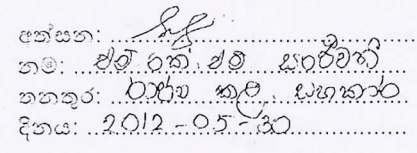 අත්සන:
නම: එම් රක් එම් සංජීවනී
තනතුර: රාජ්‍ය කළ. සහකාර
දිනය: 2012-05-30